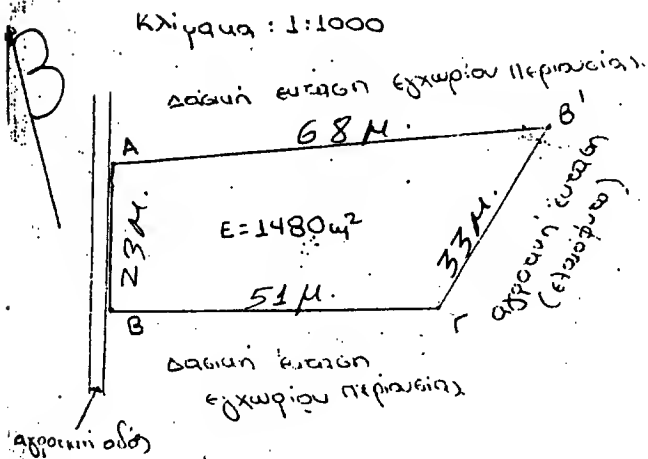 Κλίμακα : 1:1000
Β
Δασική έκταση εγχωρίου Περιουσίας.
68 μ.
Α
Β'
23 μ.
Ε=1480 μ²
33 μ.
αγροτική έκταση
(ελαιόφυτο)
51 μ.
Β
Γ
Δασική έκταση
εγχωρίου Περιουσίας
αγροτική οδός